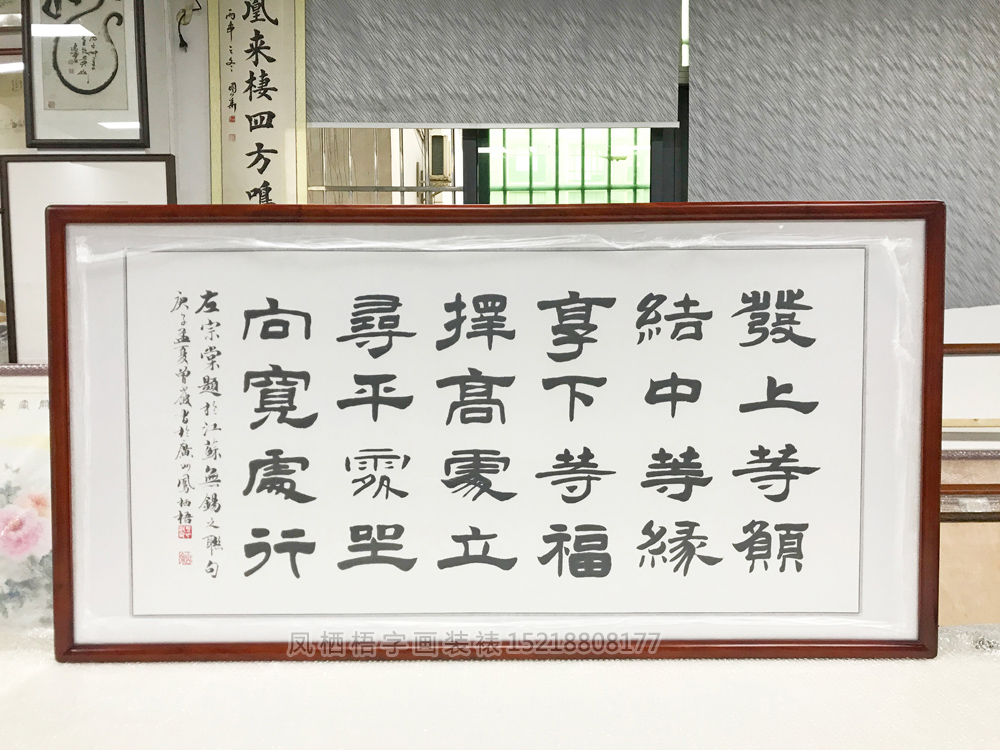 凰来棲四方鳴
發上等願
結中等緣
享下等福
擇髙處立
尋平處坐
向寬處行
左宗棠題於江蘇無錫之聯句
庚子孟夏曾書於廣州鳳栖梧
凤栖梧字画装裱 15218808177